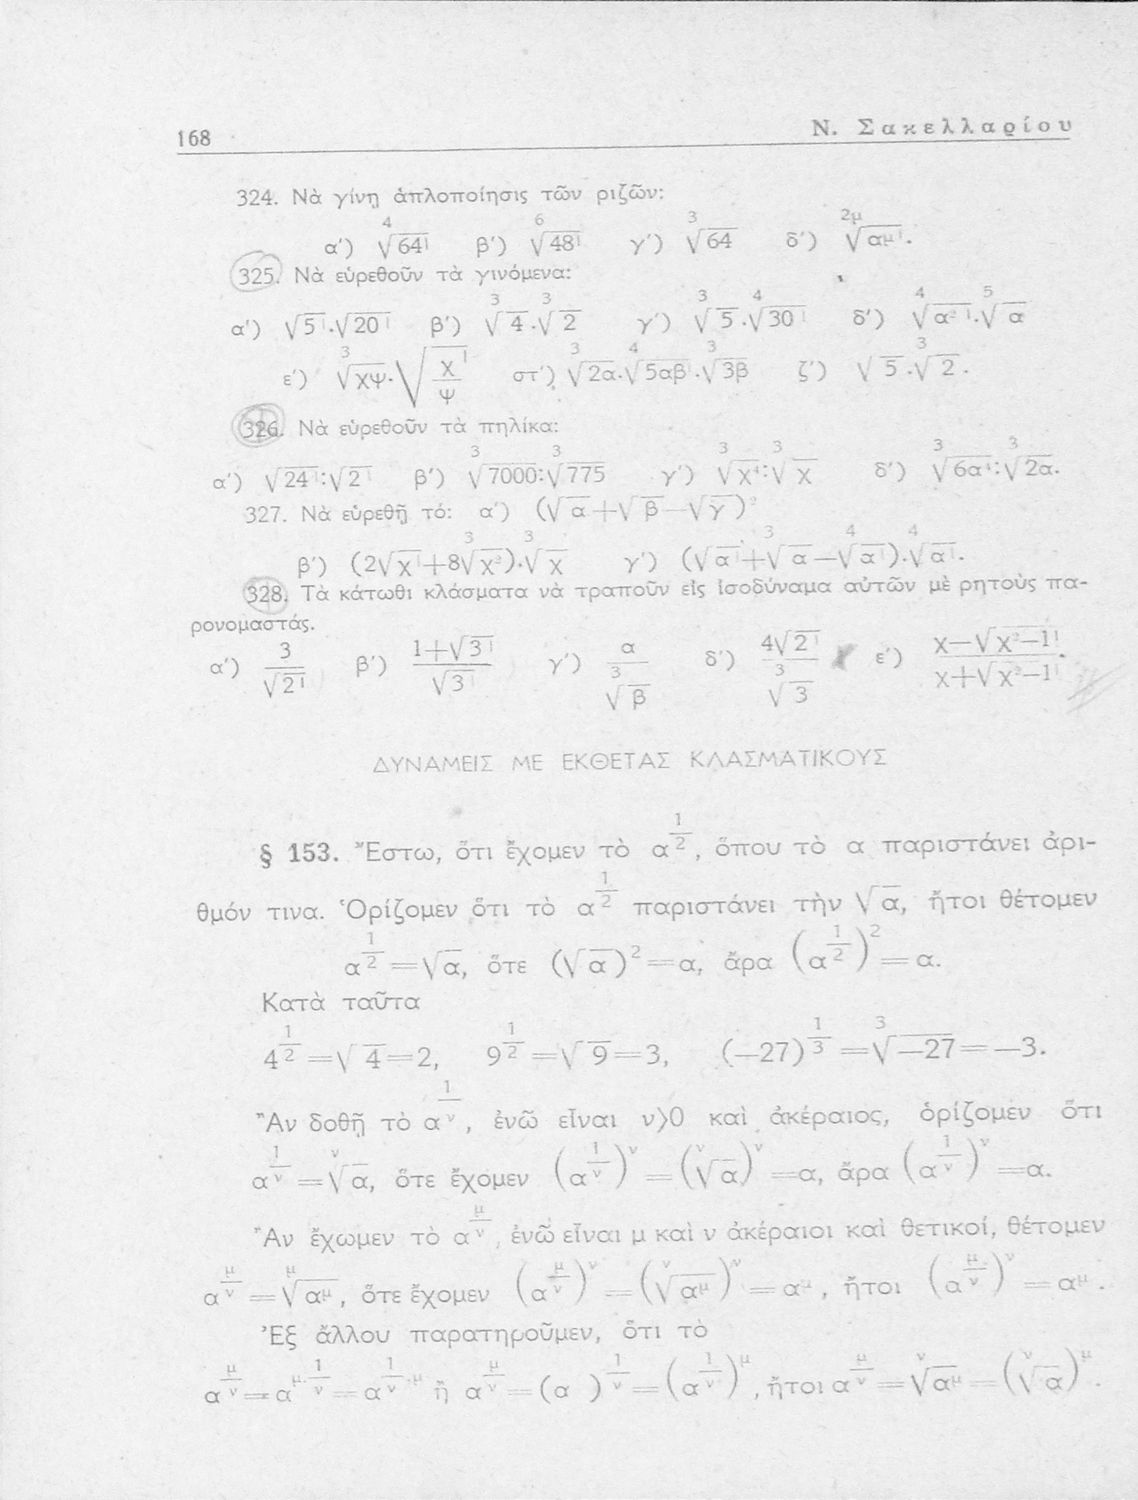 168 Ν. Σακελλαρίου
324. Νὰ γίνῃ ἁπλοποίησις τῶν ριζῶν:
α′) ∜64 β′) ⁶√48 γ′) ³√64 δ′) ²ᵘ√αᵘ.
325. Νὰ εὑρεθοῦν τὰ γινόμενα:
α′) √5·√20 β′) ³√4·³√2 γ′) ³√5·⁴√30 δ′) ⁴√α²·⁵√α
ε′) ³√χψ·√χ/ψ στ′) ³√2α·⁴√5αβ·³√3β ζ′) √5·³√2.
326. Νὰ εὑρεθοῦν τὰ πηλίκα:
α′) √24:√2 β′) ³√7000:³√775 γ′) ³√χ⁴:³√χ δ′) ³√6α⁴:³√2α.
327. Νὰ εὑρεθῇ τό: α′) (√α+√β−√γ)²
β′) (2√χ+8³√χ²)·³√χ γ′) (√α+³√α−⁴√α)·⁴√α.
328. Τὰ κάτωθι κλάσματα νὰ τραποῦν εἰς ἰσοδύναμα αὐτῶν μὲ ρητοὺς πα-
ρονομαστάς.
α′) 3/√2 β′) 1+√3/√3 γ′) α/³√β δ′) 4√2/³√3 ε′) χ−√χ²−1/χ+√χ²−1.
ΔΥΝΑΜΕΙΣ ΜΕ ΕΚΘΕΤΑΣ ΚΛΑΣΜΑΤΙΚΟΥΣ
§ 153. Ἔστω, ὅτι ἔχομεν τὸ α^1/2, ὅπου τὸ α παριστάνει ἀρι-
θμόν τινα. Ὁρίζομεν ὅτι τὸ α^1/2 παριστάνει τὴν √α, ἤτοι θέτομεν
α^1/2=√α, ὅτε (√α)²=α, ἄρα (α^1/2)²=α.
Κατὰ ταῦτα
4^1/2=√4=2, 9^1/2=√9=3, (−27)^1/3=³√−27=−3.
Ἂν δοθῇ τὸ α^1/ν, ἐνῶ εἶναι ν>0 καὶ ἀκέραιος, ὁρίζομεν ὅτι
α^1/ν=ᵛ√α, ὅτε ἔχομεν (α^1/ν)^ν=(ᵛ√α)^ν=α, ἄρα (α^1/ν)^ν=α.
Ἂν ἔχωμεν τὸ α^μ/ν, ἐνῶ εἶναι μ καὶ ν ἀκέραιοι καὶ θετικοί, θέτομεν
α^μ/ν=ᵘ√α^μ, ὅτε ἔχομεν (α^μ/ν)^ν=(ᵛ√α^μ)^ν=α^μ, ἤτοι (α^μ/ν)^ν=α^μ.
Ἐξ ἄλλου παρατηροῦμεν, ὅτι τὸ
α^μ/ν=α^μ·1/ν=α^1/ν·μ ἢ α^μ/ν=(α )^1/ν=(α^1/ν)^μ, ἤτοι α^μ/ν=ᵛ√α^μ=(ᵛ√α)^μ.